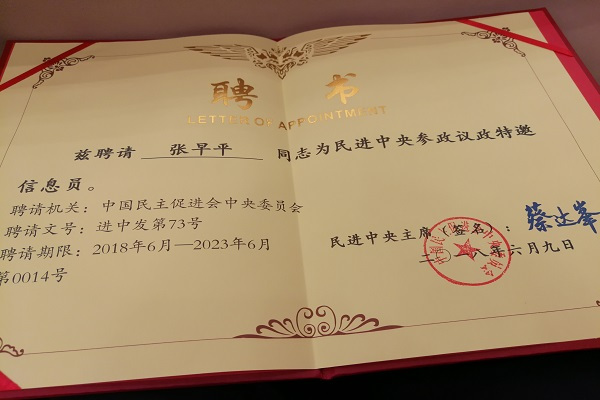 聘 书
LETTER OF APPOINTMENT
兹聘请 张早平 同志为民进中央参政议政特邀
信息员。
聘请机关：中国民主促进会中央委员会
聘请文号：进中发第73号
聘请期限：2018年6月—2023年6月
第0014号
民进中央主席（签名）：蔡达峰
二〇一八年六月九日